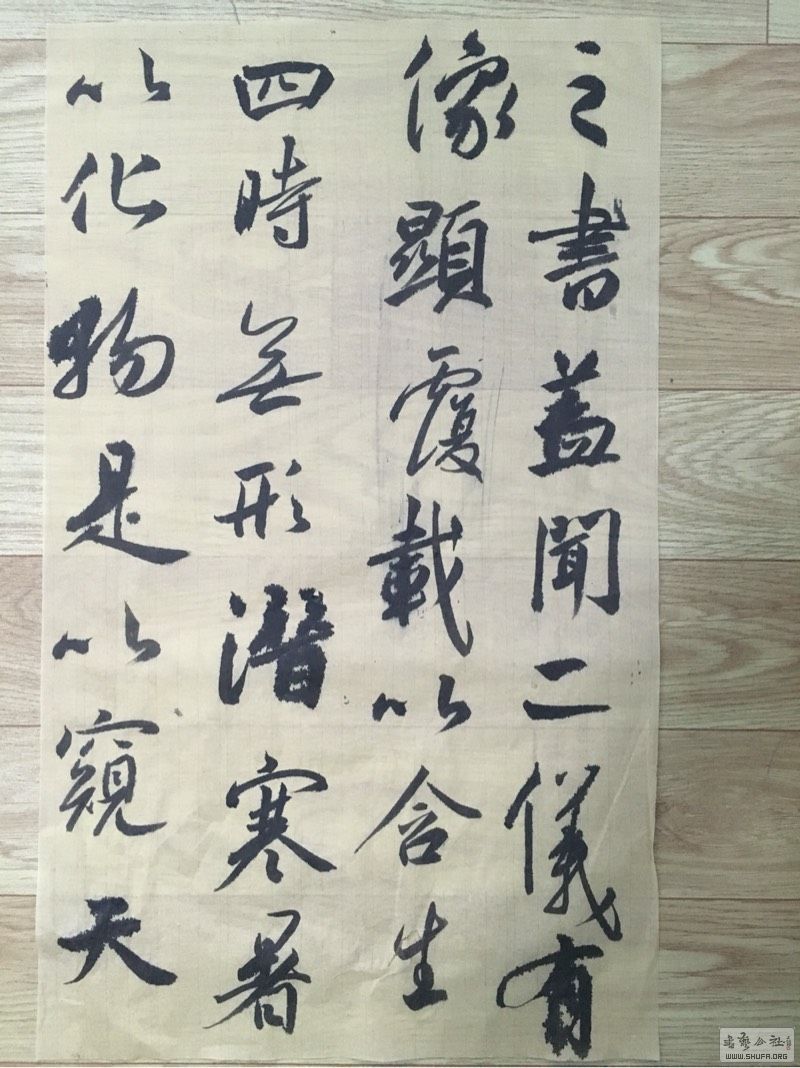 之書蓋聞二儀有
像顯覆載以含生
四時無形潛寒暑
以化物是以窺天
書藝公社
WWW.SHUFA.ORG